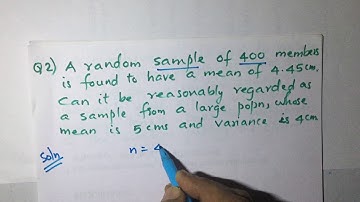 Q2) A random sample of 400 members
is found to have a mean of 4.45cm.
Can it be reasonably regarded as
a sample from a large popn, whose
mean is 5cms and variance is 4cm
Soln n = 4